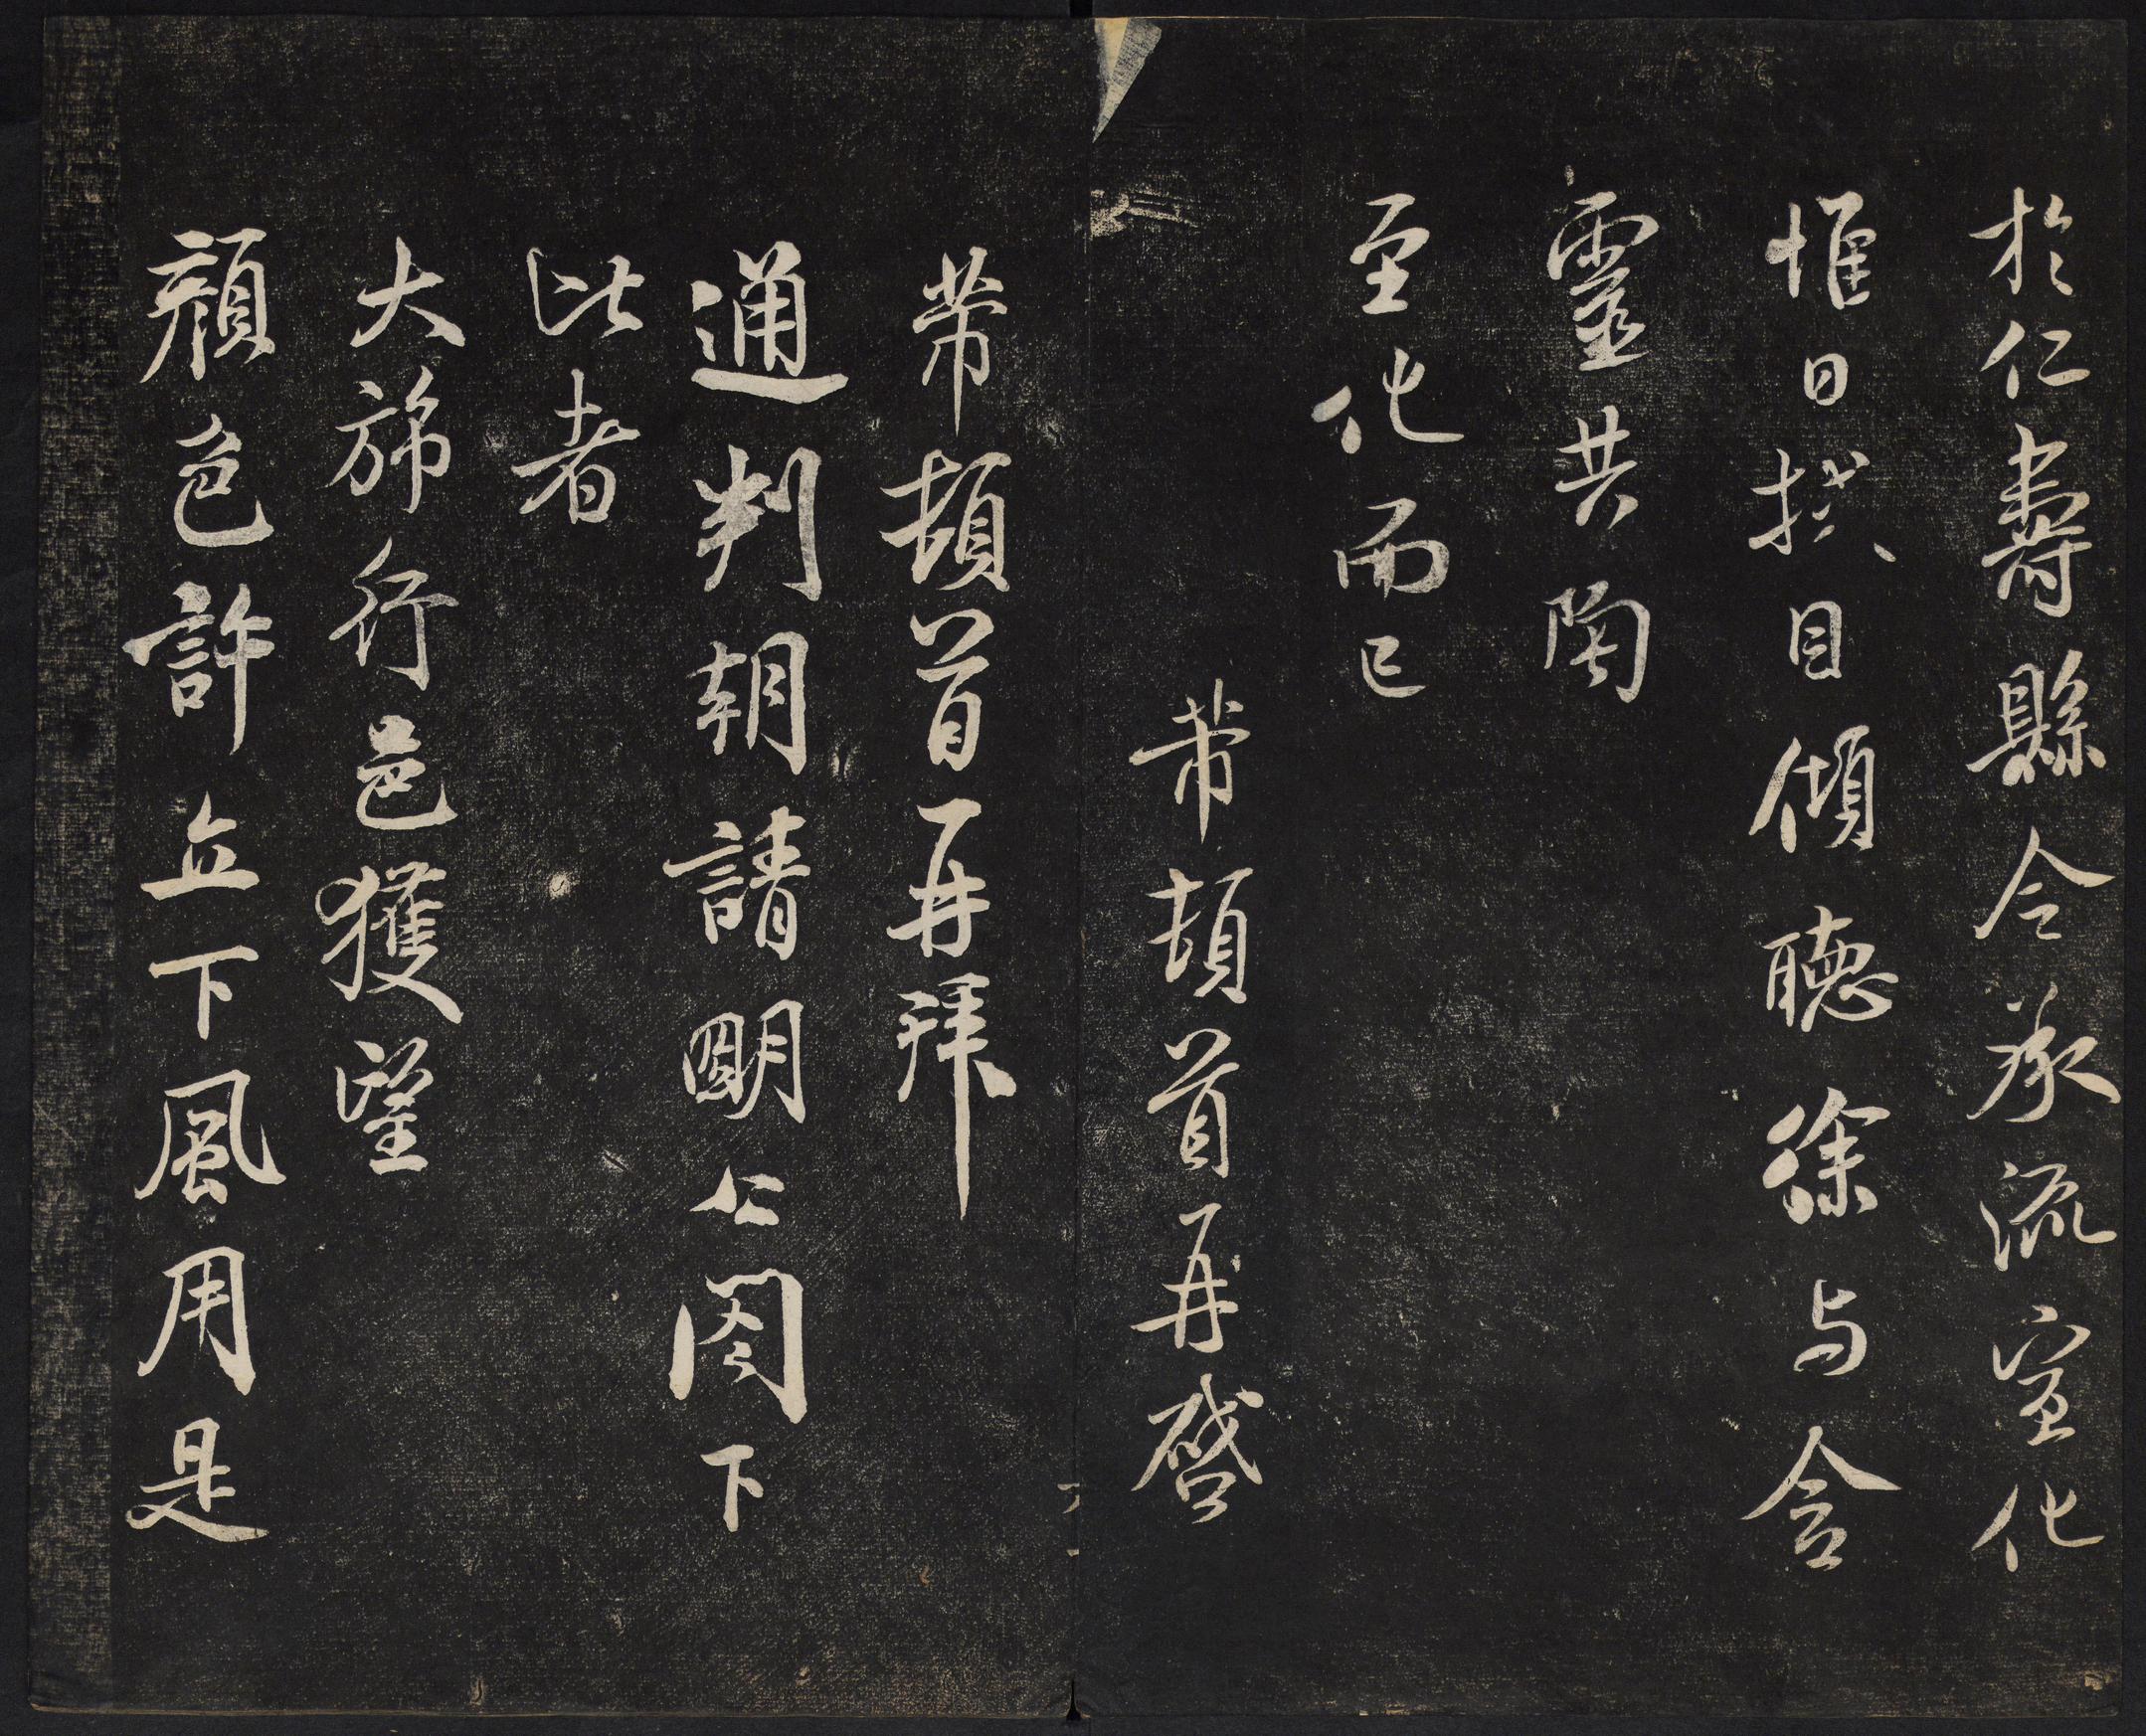 於仁壽縣令承流宣化
惟日拭目傾聽徐与含
靈共陶
至化而已
芾頓首再啓
芾頓首再拜
通判朝請明公閤下
比者
大斾行邑獲望
顔色許立下風用是